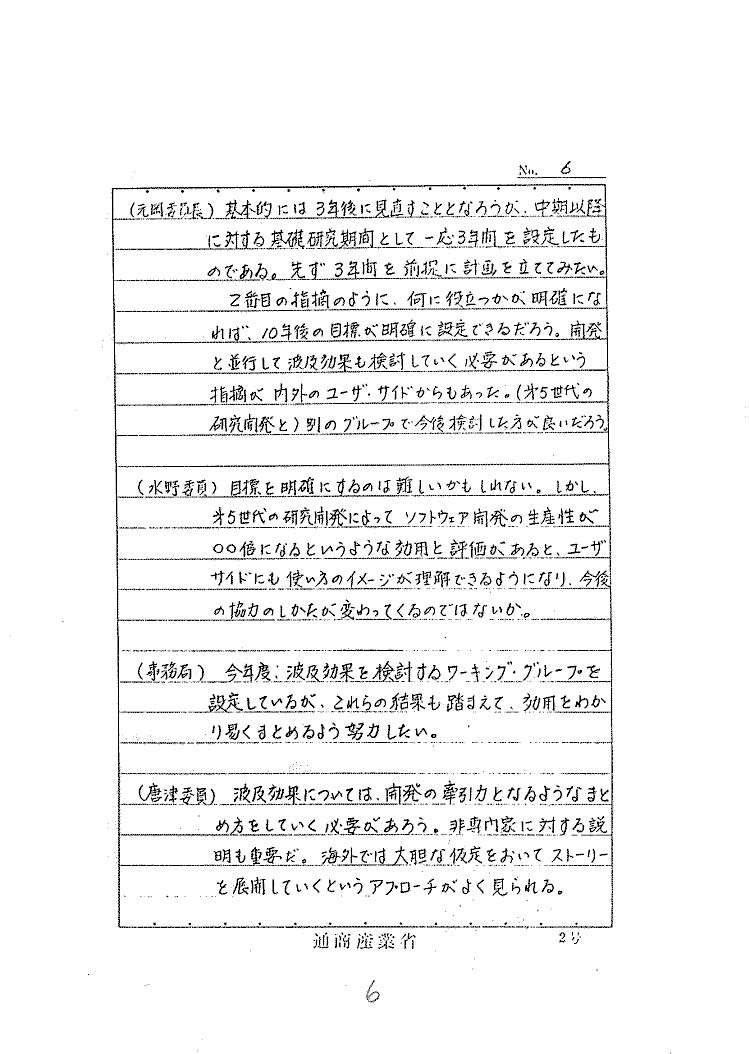 No. 6
(元岡委員長) 基本的には3年後に見直すこととなろうが、中期以降
に対する基礎研究期間として一応3年間を設定したも
のである。先ず3年間を前提に計画を立ててみたい。
2番目の指摘のように、何に役立つかが明確にな
れば、10年後の目標が明確に設定できるだろう。開発
と並行して波及効果も検討していく必要があるという
指摘が内外のユーザ・サイドからもあった。(才5世代の
研究開発と)別のグループで今後検討した方が良いだろう。
(水野委員) 目標を明確にするのは難しいかもしれない。しかし、
才5世代の研究開発によってソフトウェア開発の生産性が
〇〇倍になるというような効用と評価があると、ユーザ
サイドにも使い方のイメージが理解できるようになり、今後
の協力のしかたが変わってくるのではないか。
(事務局) 今年度、波及効果を検討するワーキング・グループを
設定しているが、これらの結果も踏まえて、効用をわか
り易くまとめるよう努力したい。
(唐津委員) 波及効果については、開発の牽引力となるようなまと
め方をしていく必要があろう。非専門家に対する説
明も重要だ。海外では大胆な仮定をおいてストーリー
を展開していくというアプローチがよく見られる。
通商産業省
2号
6